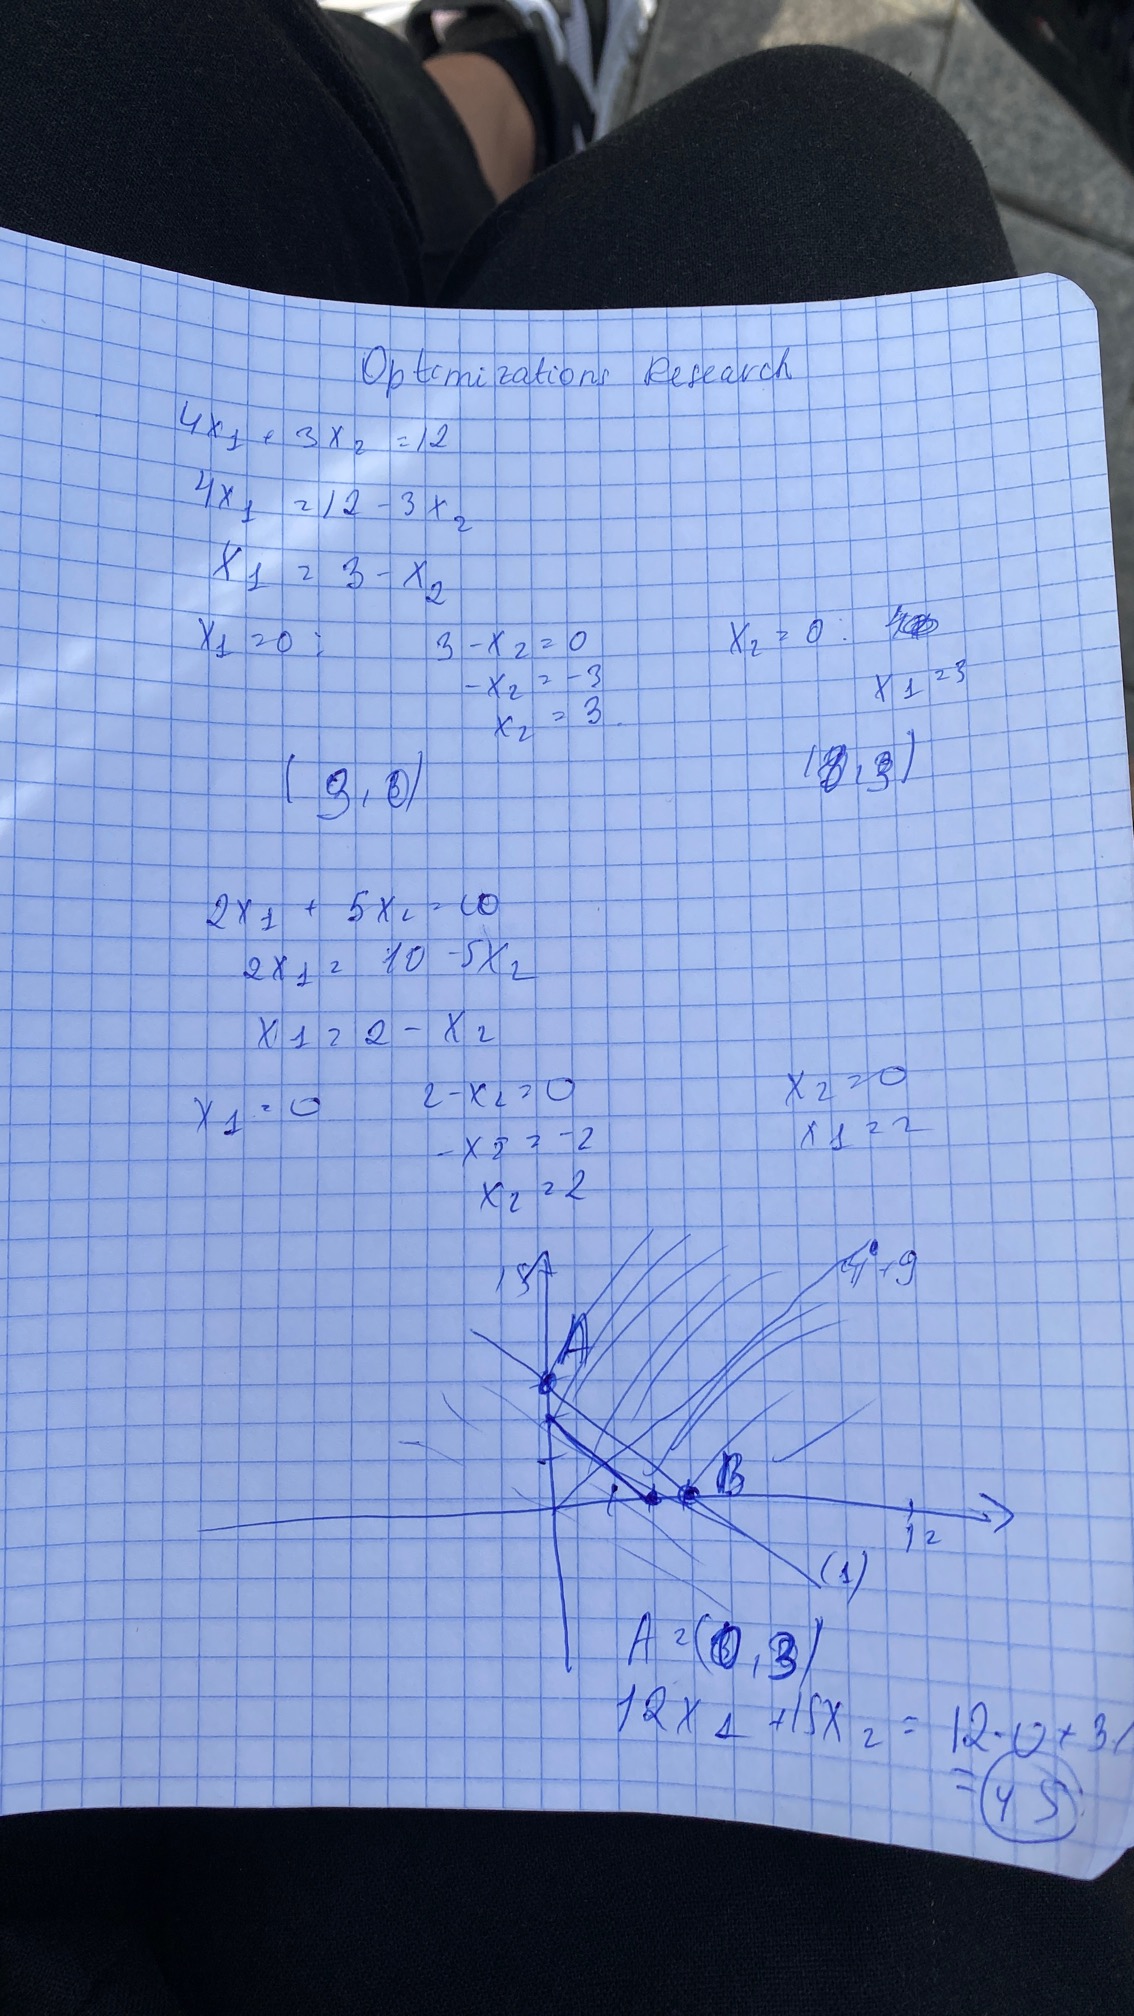 Optimizations Research
4x₁ + 3x₂ = 12
4x₁ = 12 - 3x₂
x₁ = 3 - x₂
x₁ = 0 : 3 - x₂ = 0 x₂ = 0 :
-x₂ = -3 x₁ = 3
x₂ = 3
(3, 0)
2x₁ + 5x₂ = 10
2x₁ = 10 - 5x₂
x₁ = 2 - x₂
x₁ = 0 2 - x₂ = 0 x₂ = 0
-x₂ = -2 x₁ = 2
x₂ = 2
15
A
B
12
(1)
A = (0, 3)
12x₁ + 15x₂ = 12·0 + 3
= 45